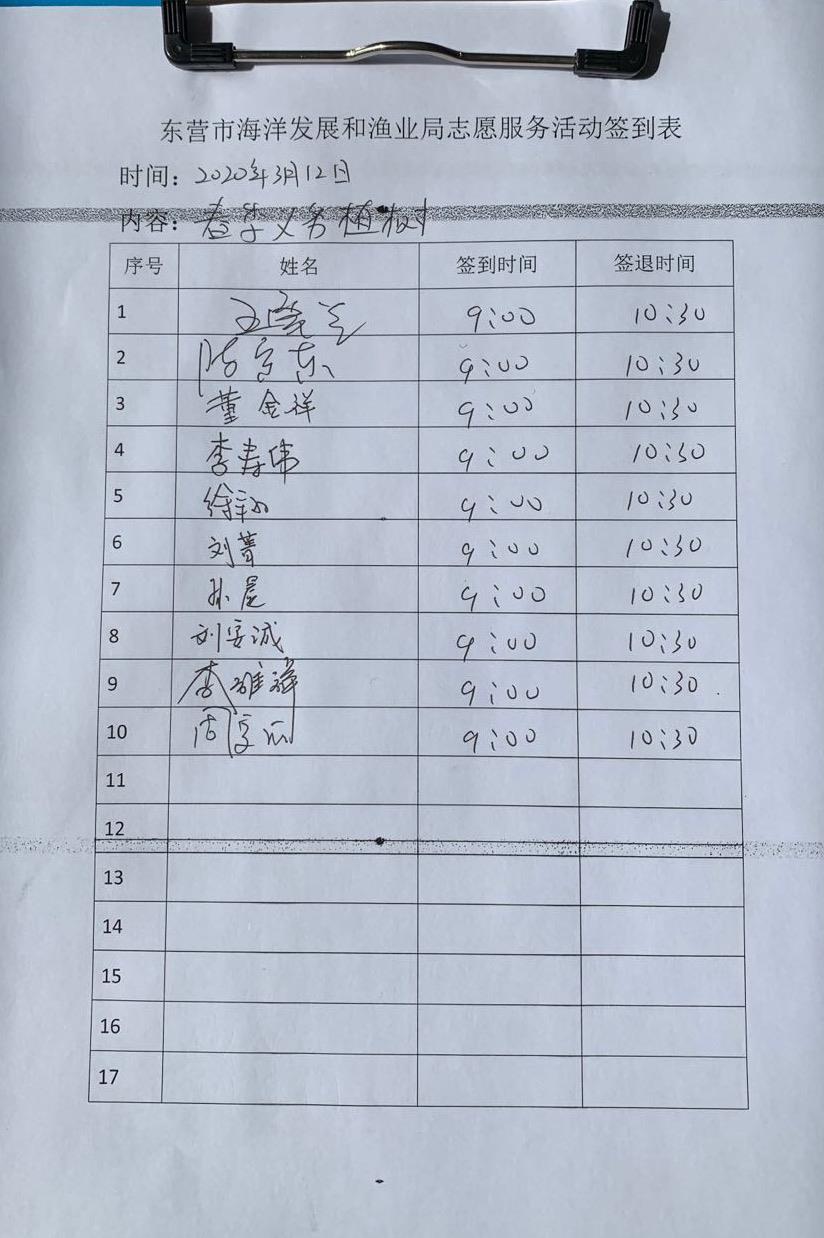 东营市海洋发展和渔业局志愿服务活动签到表
时间：2020年3月12日
内容：春季义务植树
序号 姓名 签到时间 签退时间
1 9:00 10:30
2 9:00 10:30
3 董金祥 9:00 10:30
4 李寿伟 9:00 10:30
5 9:00 10:30
6 刘菁 9:00 10:30
7 孙星 9:00 10:30
8 刘安诚 9:00 10:30
9 李维祥 9:00 10:30
10 9:00 10:30
11
12
13
14
15
16
17